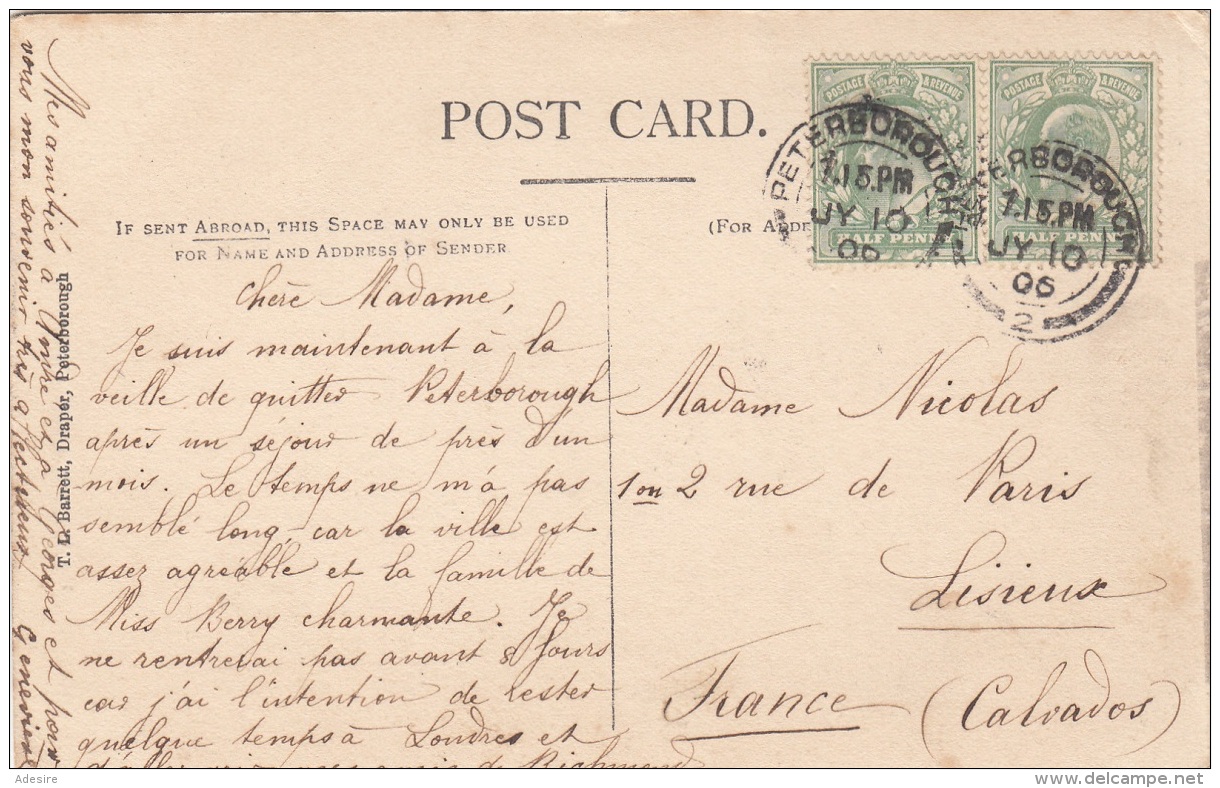 POST CARD.
IF SENT ABROAD, THIS SPACE MAY ONLY BE USED
FOR NAME AND ADDRESS OF SENDER
(FOR ADDRE
POSTAGE & REVENUE
HALF PENNY
POSTAGE & REVENUE
HALF PENNY
PETERBOROUGH
1.15.PM
JY 10
06
PETERBOROUGH
1.15.PM
JY 10
06
2
Chère Madame,
Je suis maintenant à la
veille de quitter Peterborough
après un séjour de près d'un
mois. Le temps ne m'a pas
semblé long, car la ville est
assez agréable et la famille de
Miss Berry charmante. Je
ne rentrerai pas avant 8 jours
car j'ai l'intention de rester
quelque temps à Londres et
d'aller voir mes amis de Richmond
Mes amitiés à André et à Georges et pour
vous mon souvenir très affectueux Geneviève
T. L. Barrett, Draper, Peterborough
Madame Nicolas
1 ou 2 rue de Paris
Lisieux
France (Calvados)
Adesire
delcampe.net